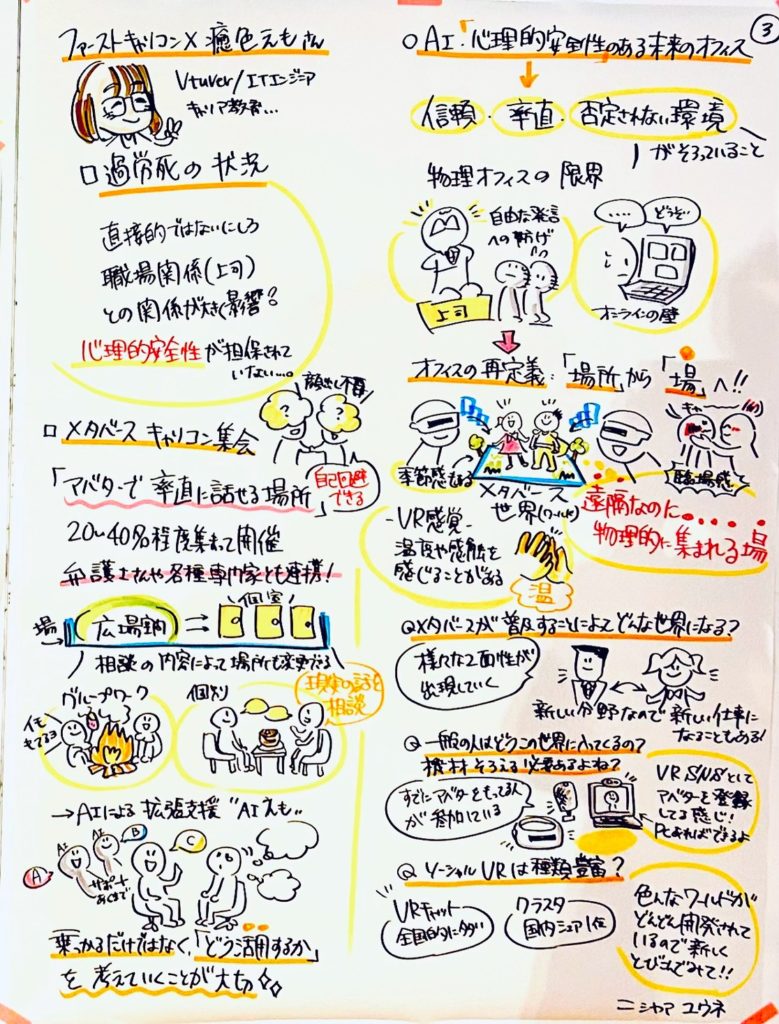 ③
ファーストキャリコン×癒色えもさん
Vtuver/ITエンジニア
キャリア教育...
□過労死の状況
直接的ではないにしろ
職場関係(上司)
との関係が大きく影響?
心理的安全性が担保されて
いない...。
□メタバースキャリコン集会
顔出し不要
?
?
「アバターで率直に話せる場所」
自己回避
できる
20~40名程度集まって開催
弁護士さんや各種専門家とも連携!
場→
広場
個室
相談の内容によって場所も変更できる
グループワーク
イモ
もてる
個別
現実の話を
相談
→AIによる拡張支援"AIえも"
AI
AI
A
B
C
サポート
あくまで
乗っかるだけではなく、「どう活用するか」
を考えていくことが大切
○AI・「心理的安全性のある未来のオフィス
信頼・率直・否定されない環境
がそろっていること
物理オフィスの限界
自由な発言
への妨げ
上司
....
どうぞ
オンラインの壁
オフィスの再定義:「場所」から「場」へ!!
季節感もある
メタバース
世界(ワールド)
キャー
臨場感
遠隔なのに......
物理的に集まれる場
-VR感覚-
温度や感触を
感じることがある
温
Qメタバースが普及することによってどんな世界になる?
様々な2面性が
出現していく
新しい分野なので新しい仕事に
なることもある!
Q一般の人はどうこの世界に入ってくるの?
機材そろえる必要あるよね?
すでにアバターをもってる人
が参加している
VRSNSとして
アバターを登録
してる感じ!
PCあればできるよ
QソーシャルVRは種類豊富?
VRチャット
全国的に多い
クラスタ
国内シェア1位
色んなワールドが
どんどん開発されて
いるので新しく
とびこんでみて!!
ニシヤマ ユウネ